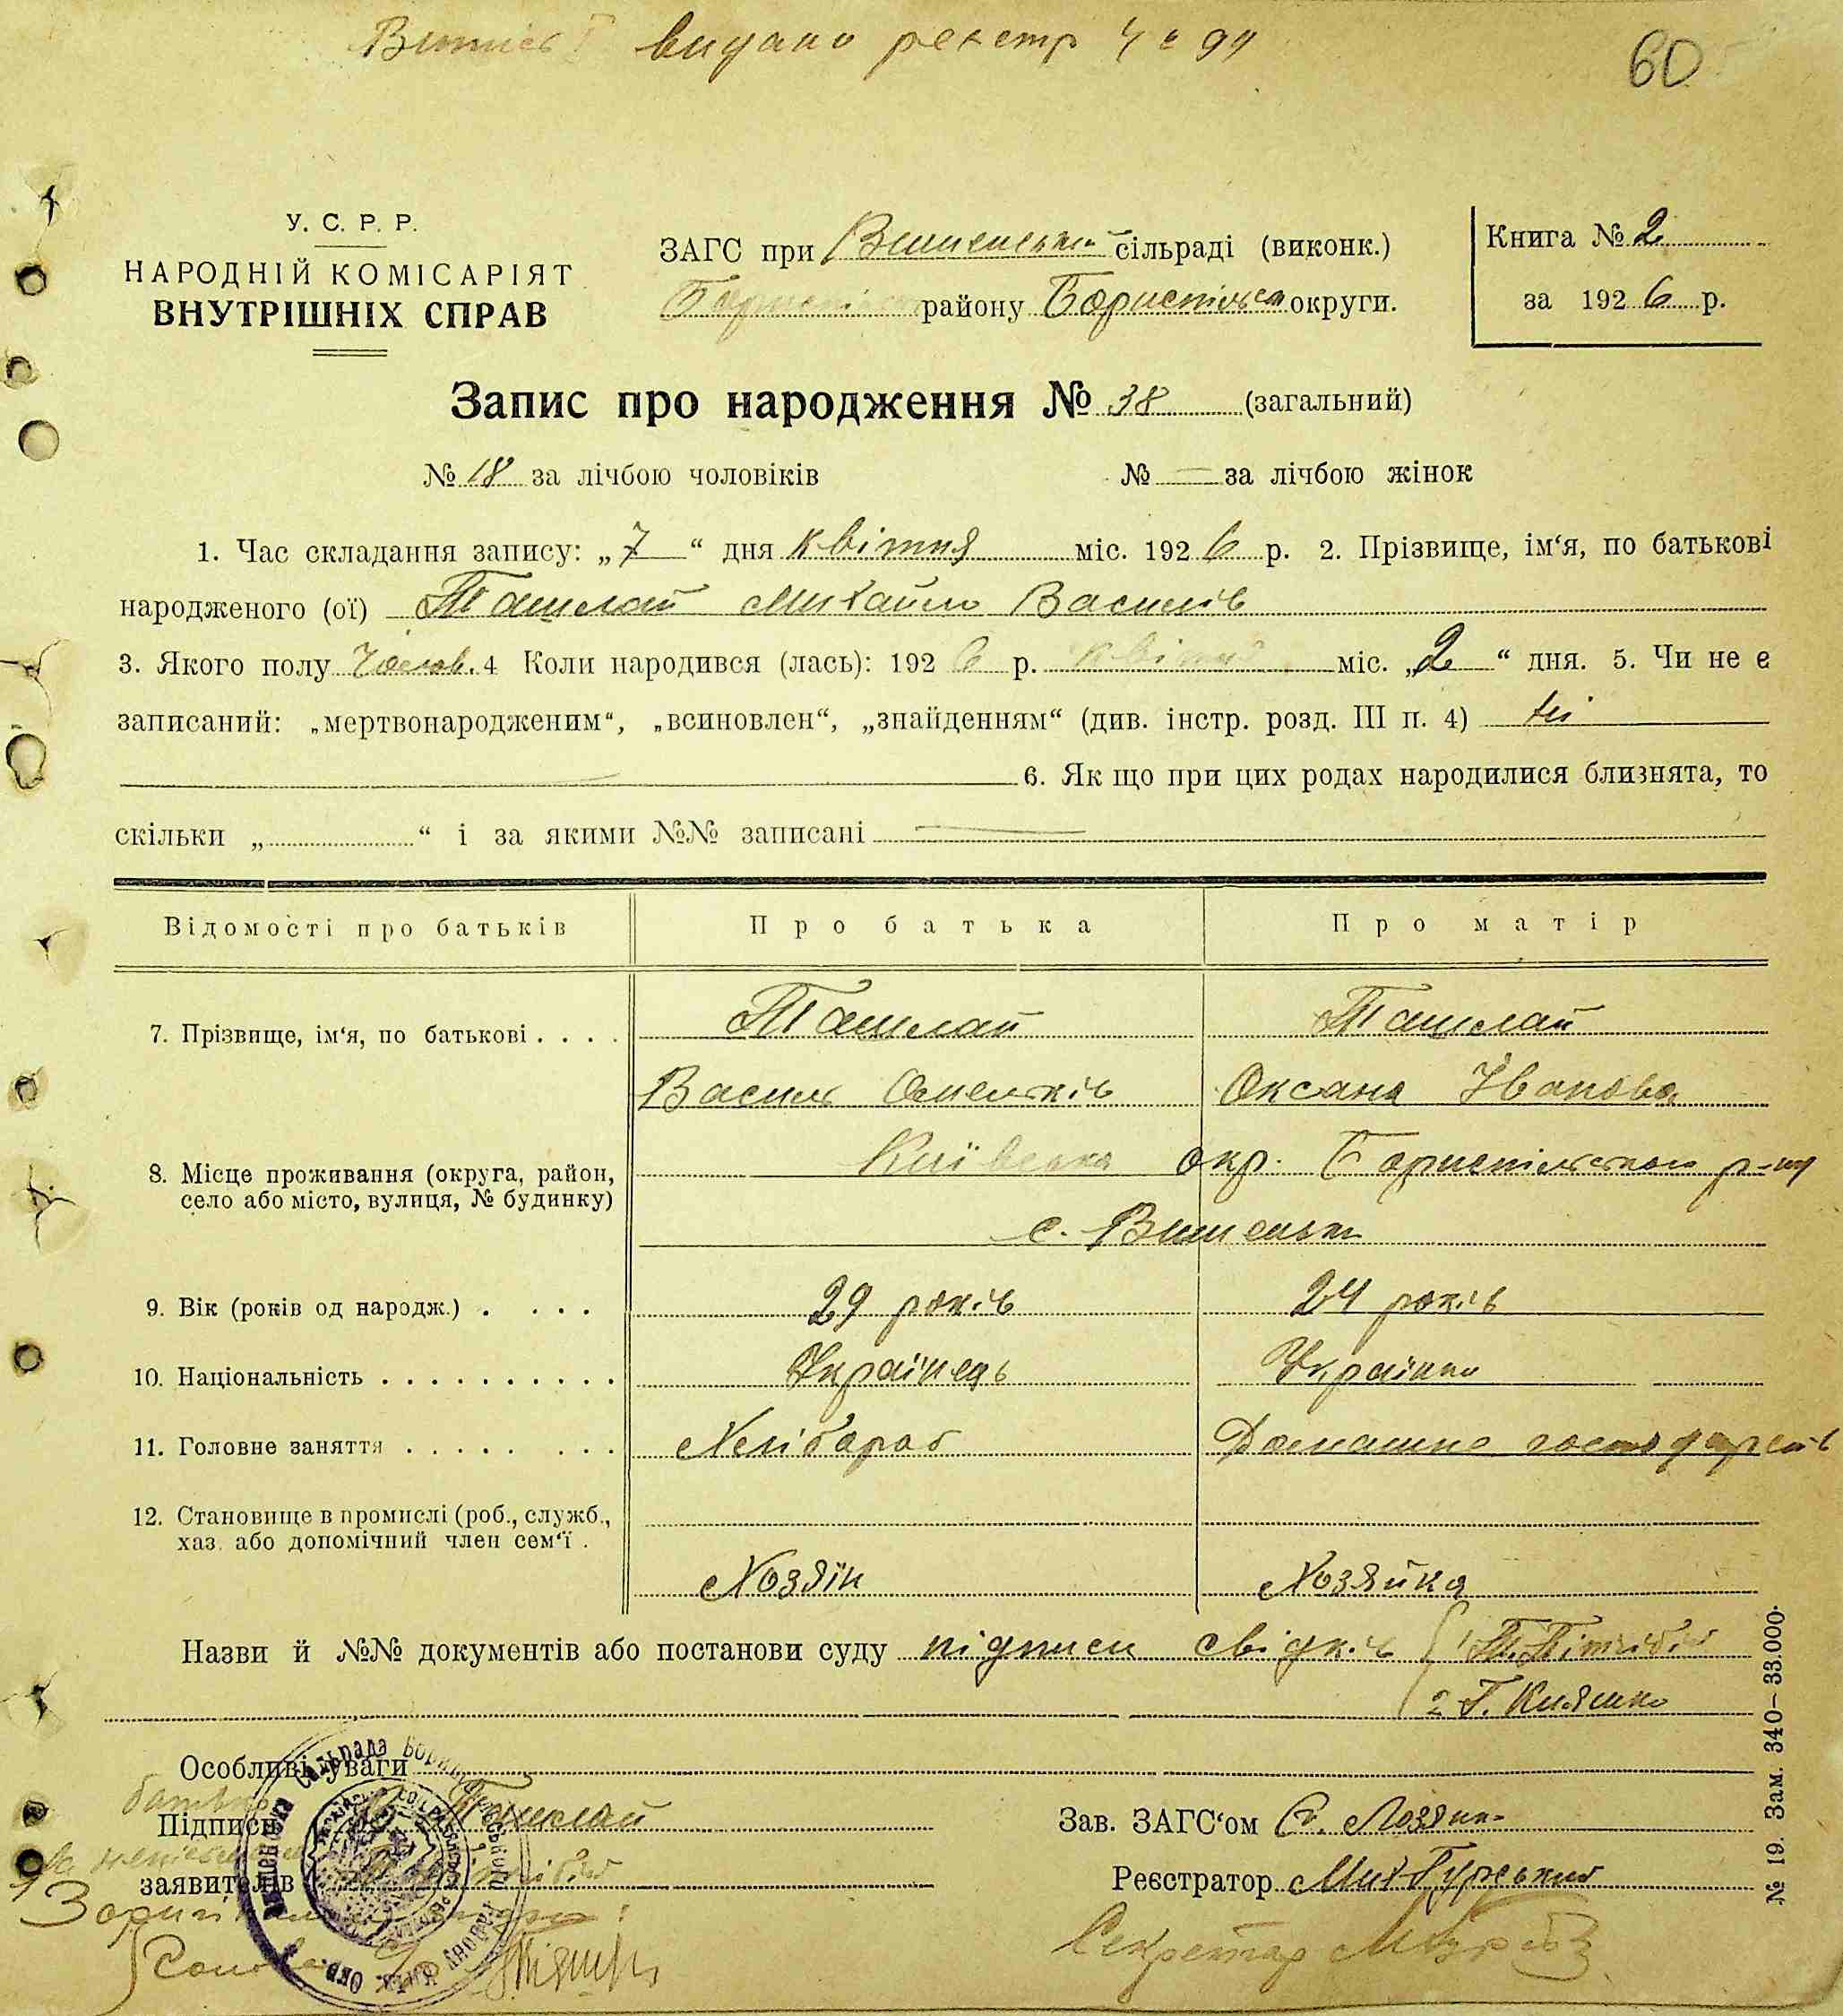 видано реєстр
60
У. С. Р. Р.
НАРОДНІЙ КОМІСАРІЯТ
ВНУТРІШНІХ СПРАВ
ЗАГС при Вишеньки сільраді (виконк.)
району Бориспільск округи.
Книга № 2
за 1926 р.
Запис про народження № 38 (загальний)
№ 18 за лічбою чоловіків № — за лічбою жінок
1. Час складання запису: „7“ дня квітня міс. 1926 р. 2. Прізвище, ім‘я, по батькові
народженого (ої) Ташлай Михайло Василів
3. Якого полу Чолов. 4 Коли народився (лась): 1926 р. квітня міс. „2“ дня. 5. Чи не є
записаний: „мертвонародженим“, „всиновлен“, „знайденням“ (див. інстр. розд. III п. 4) ні
6. Як що при цих родах народилися близнята, то
скільки „ “ і за якими №№ записані —
Відомості про батьків Про батька Про матір
7. Прізвище, ім‘я, по батькові . . . . Ташлай Ташлай
Василь Омельків Оксана Іванова
8. Місце проживання (округа, район, село або місто, вулиця, № будинку) Київська окр. Бориспільського р-ну
с. Вишеньки
9. Вік (років од народж.) . . . . 29 років 24 років
10. Національність . . . . . . . . . . Українець Українка
11. Головне заняття . . . . . . . . Хлібороб Домашнє господарств
12. Становище в промислі (роб., служб., хаз. або допомічний член сем‘ї .
Хозяїн Хозяйка
Назви й №№ документів або постанови суду підписи свідків 1
2 Г. Княшко
Особливі уваги
батько
Підписи Ташлай
заявителів
Зав. ЗАГС‘ом Лозян
Реєстратор Мих Гурський
Секретар
№ 19. Зам. 340–33.000.